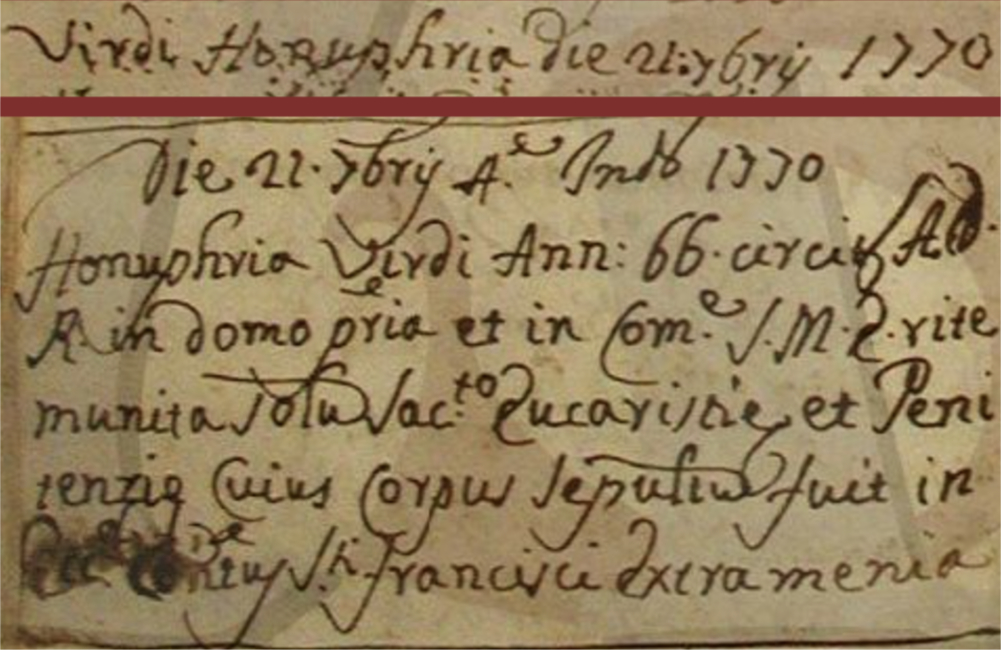 Virdi Honuphria die 21: 7bris 1770
Die 21. 7bris 4.e Indis 1770
Honuphria Virdi Ann: 66. circits A.D.
R. in domo pria et in Com.e S.M.E. rite
munita solu Sac.to Eucaristie et Peni
tenzie Cuius Corpus sepultum fuit in
Ecc. Sti. Francisci Extramenia